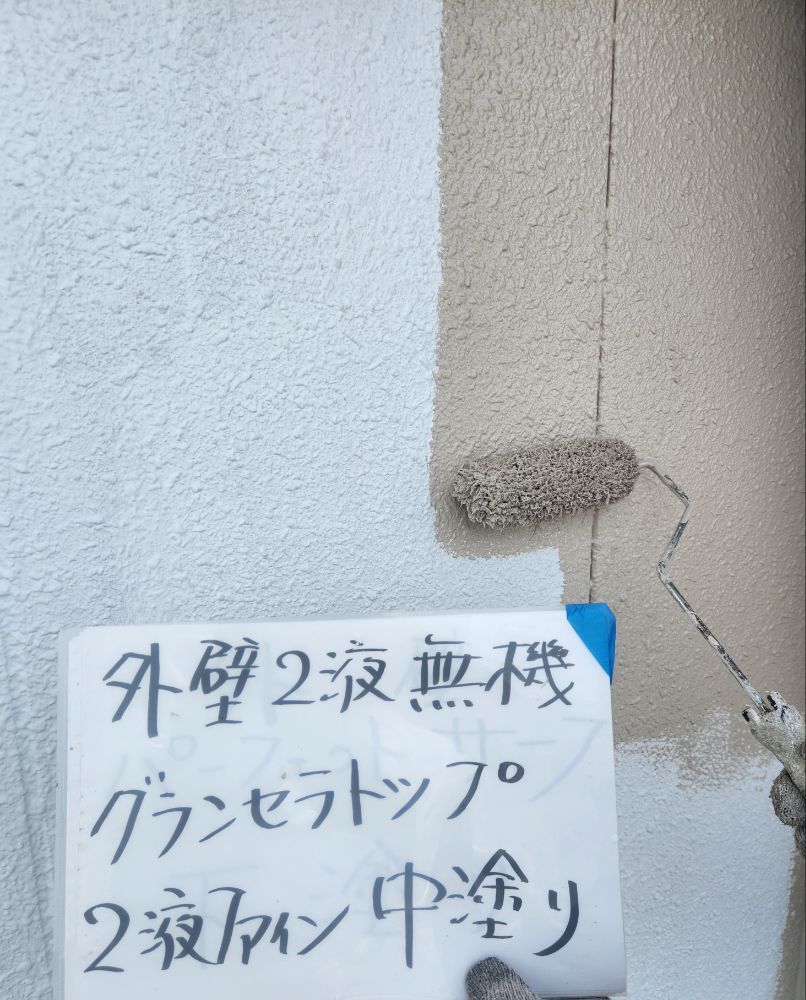 外壁2液無機
グランセラトップ
2液ファイン中塗り